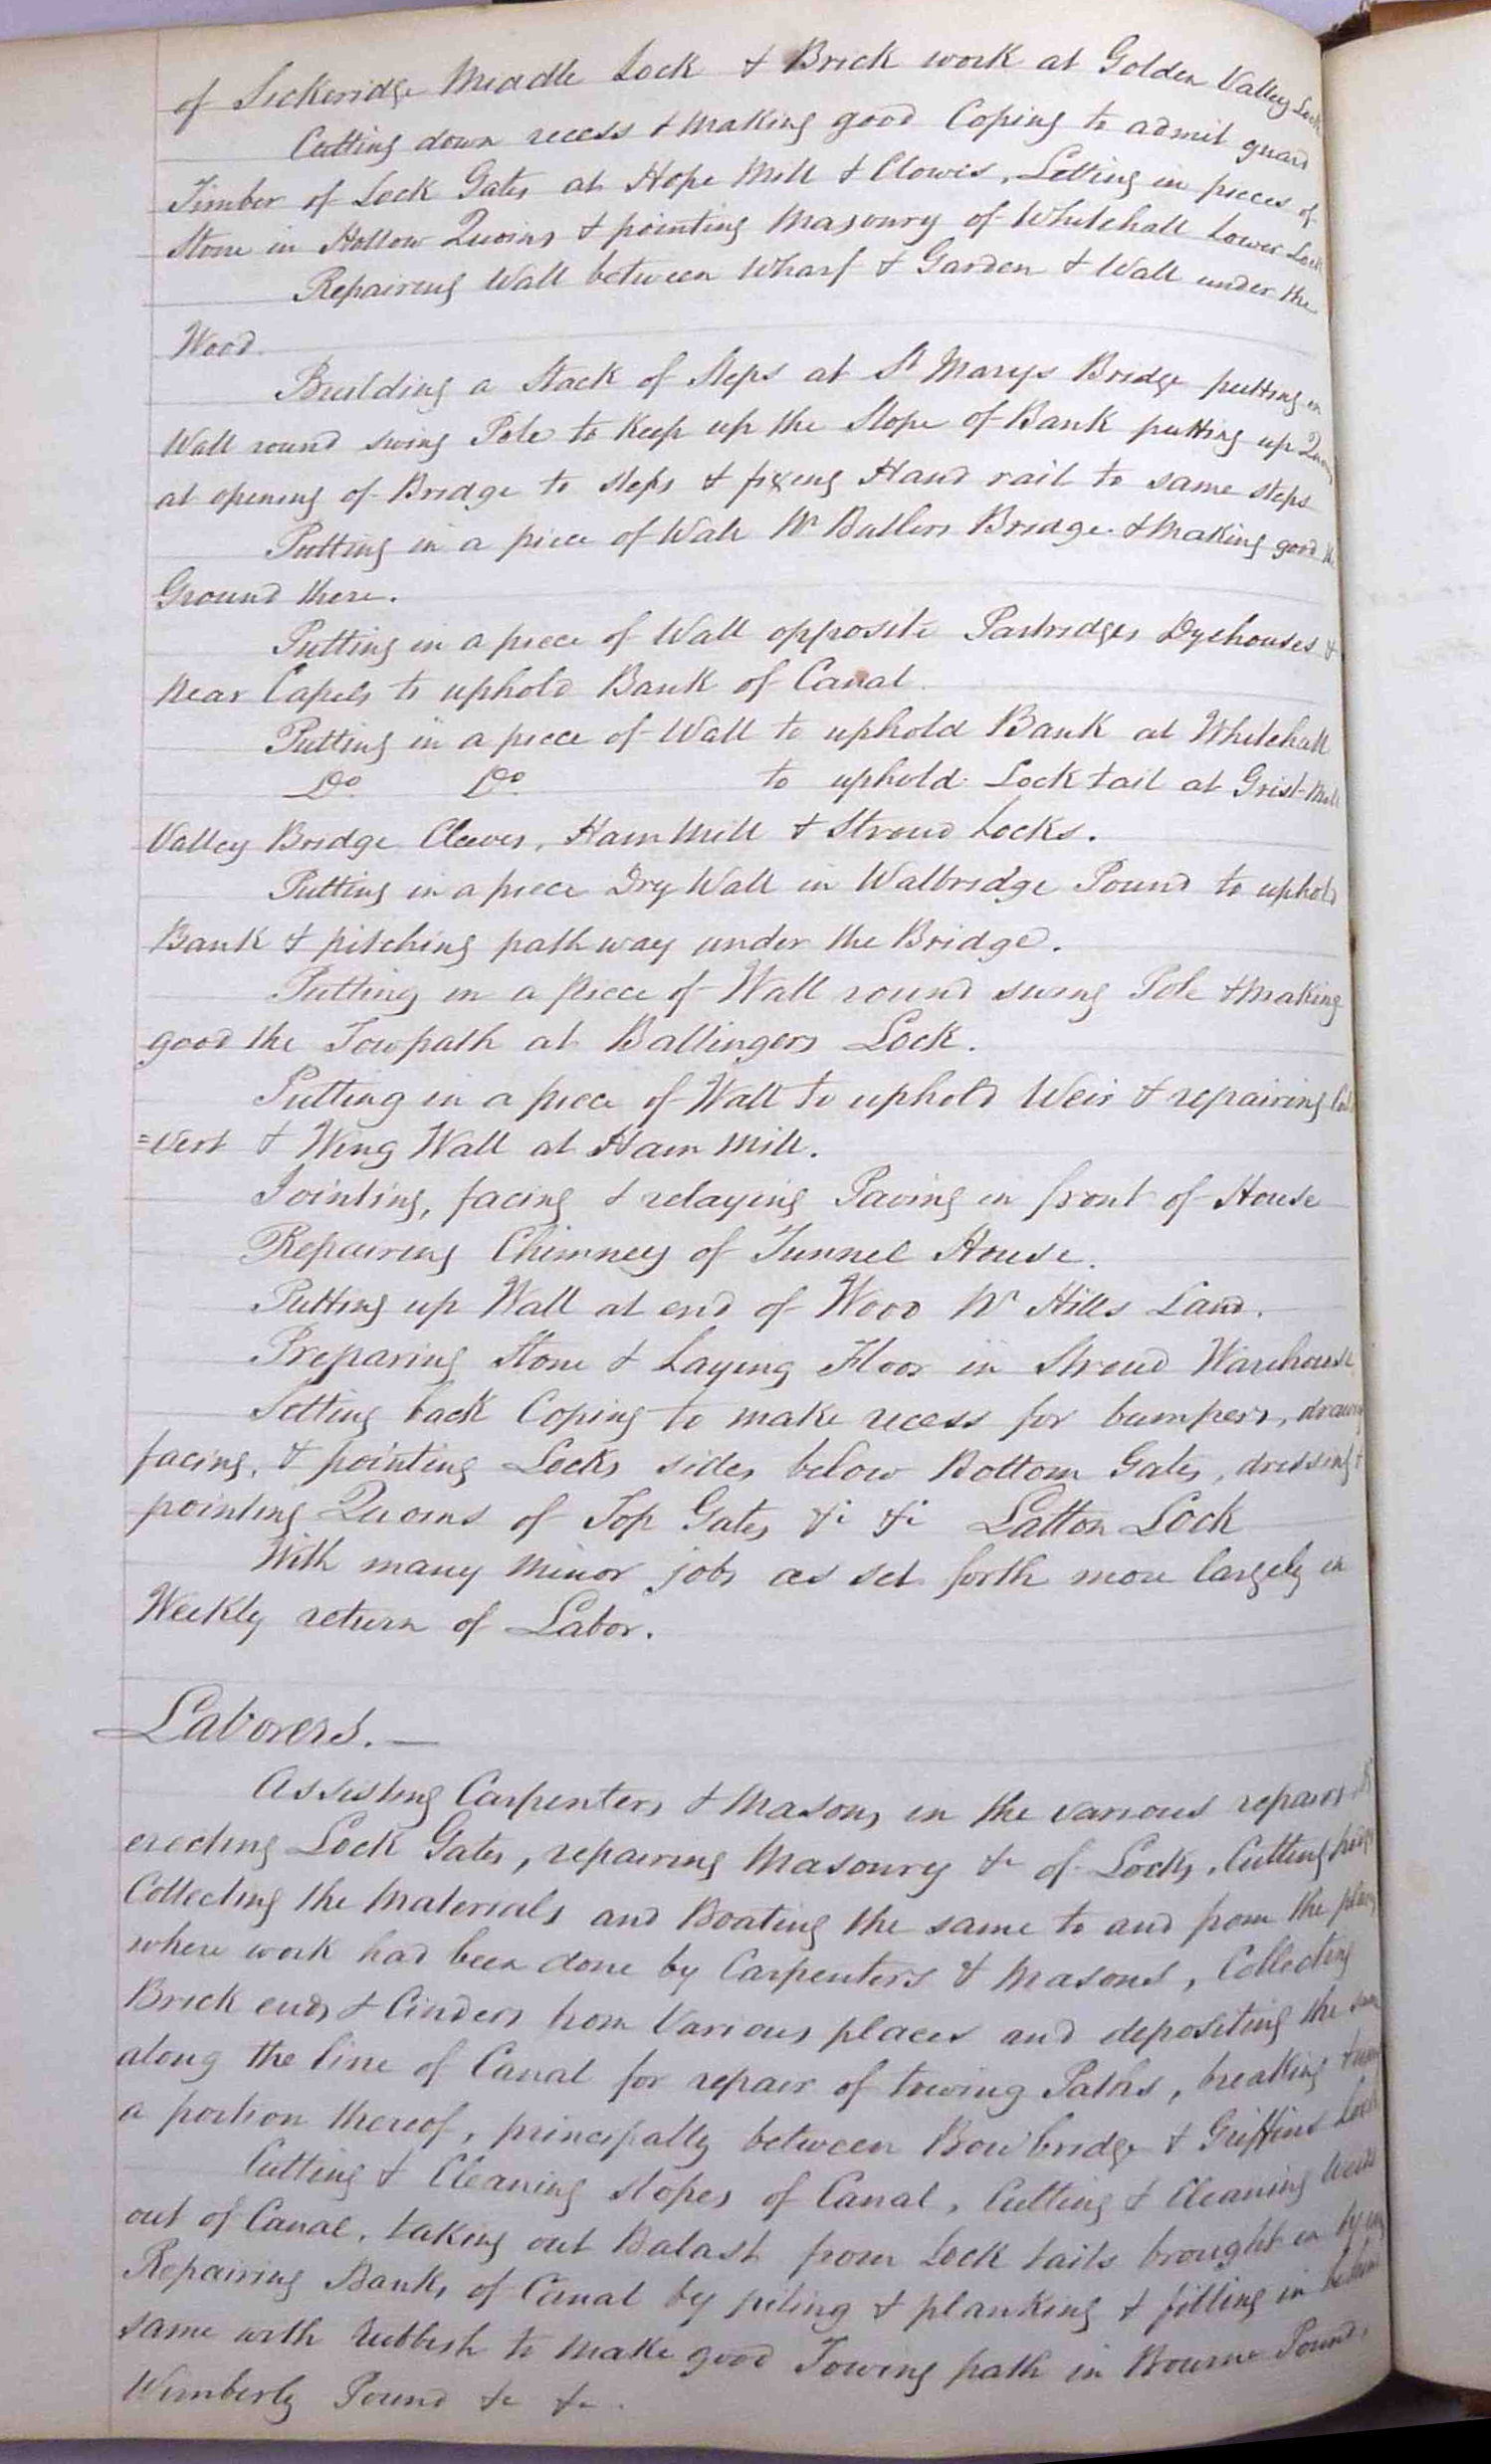 of Sickeridge Middle Lock & Brick work at Golden Valley Lock
Cutting down recess & Making good Coping to admit guard
Timber of Lock Gates at Hope Mill & Clowes, Letting in pieces of
Stone in Hollow Quoins & pointing Masonry of Whitehall Lower Lock
Repairing Wall between Wharf & Garden & Wall under the
Wood.
Building a Stack of Steps at St Marys Bridge putting in
Wall round swing Pole to Keep up the Slope of Bank putting up
at opening of Bridge to steps & fixing Hand rail to same steps
Putting in a piece of Wall Nr Butlers Bridge & Making good the
Ground there.
Putting in a piece of Wall opposite Partridges Dyehouses &
near Capels to uphold Bank of Canal.
Putting in a piece of Wall to uphold Bank at Whitehall
Do Do to uphold Lock tail at Grist Mill
Valley Bridge Cleeves, Ham Mill & Stroud Locks.
Putting in a piece Dry Wall in Walbridge Pound to uphold
Bank & pitching path way under the Bridge.
Putting in a piece of Wall round swing Pole & Making
good the Towpath at Ballingers Lock.
Putting in a piece of Wall to uphold Weir & repairing Cul
=vert & Wing Wall at Ham Mill.
Jointing, facing & relaying Paving in front of House
Repairing Chimney of Tunnel House.
Putting up Wall at end of Wood Nr Hills Land.
Preparing Stone & Laying Floor in Stroud Warehouse
Setting back Coping to make recess for bumpers,
facing, & pointing Locks sides below Bottom Gates, dressing &
pointing Quoins of Top Gates &c &c Latton Lock
With many Minor jobs as set forth more largely in
Weekly return of Labor.
Laborers. —
Assisting Carpenters & Masons in the various repairs
erecting Lock Gates, repairing Masonry &c of Locks, Cutting
Collecting the Materials and Boating the same to and from the places
where work had been done by Carpenters & Masons, Collecting
Brick ends & Cinders from Various places and depositing the same
along the line of Canal for repair of towing Paths, breaking
a portion thereof, principally between Bowbridge & Griffins Lock
Cutting & Cleaning slopes of Canal, Cutting & Cleaning
out of Canal, taking out Balast from Lock tails brought in by
Repairing Banks of Canal by piling & planking & filling in behind
same with rubbish to Make good Towing path in Bourne Pound,
Wimberly Pound &c &c.